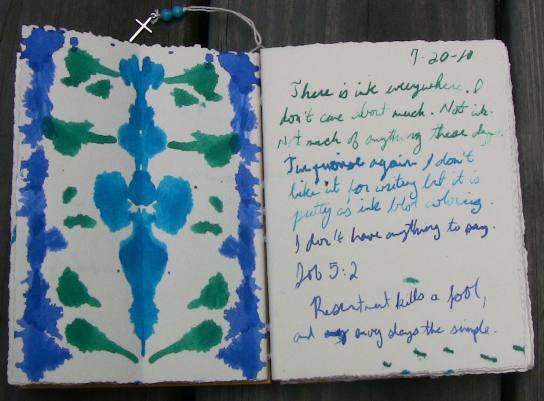 7-20-10
There is ink everywhere. I
don't care about much. Not ink.
Not much of anything these days.
Turquoise again I don't
like it for writing but it is
pretty as ink blot coloring.
I don't have anything to say.
Job 5:2
Resentment kills a fool,
and envy slays the simple.